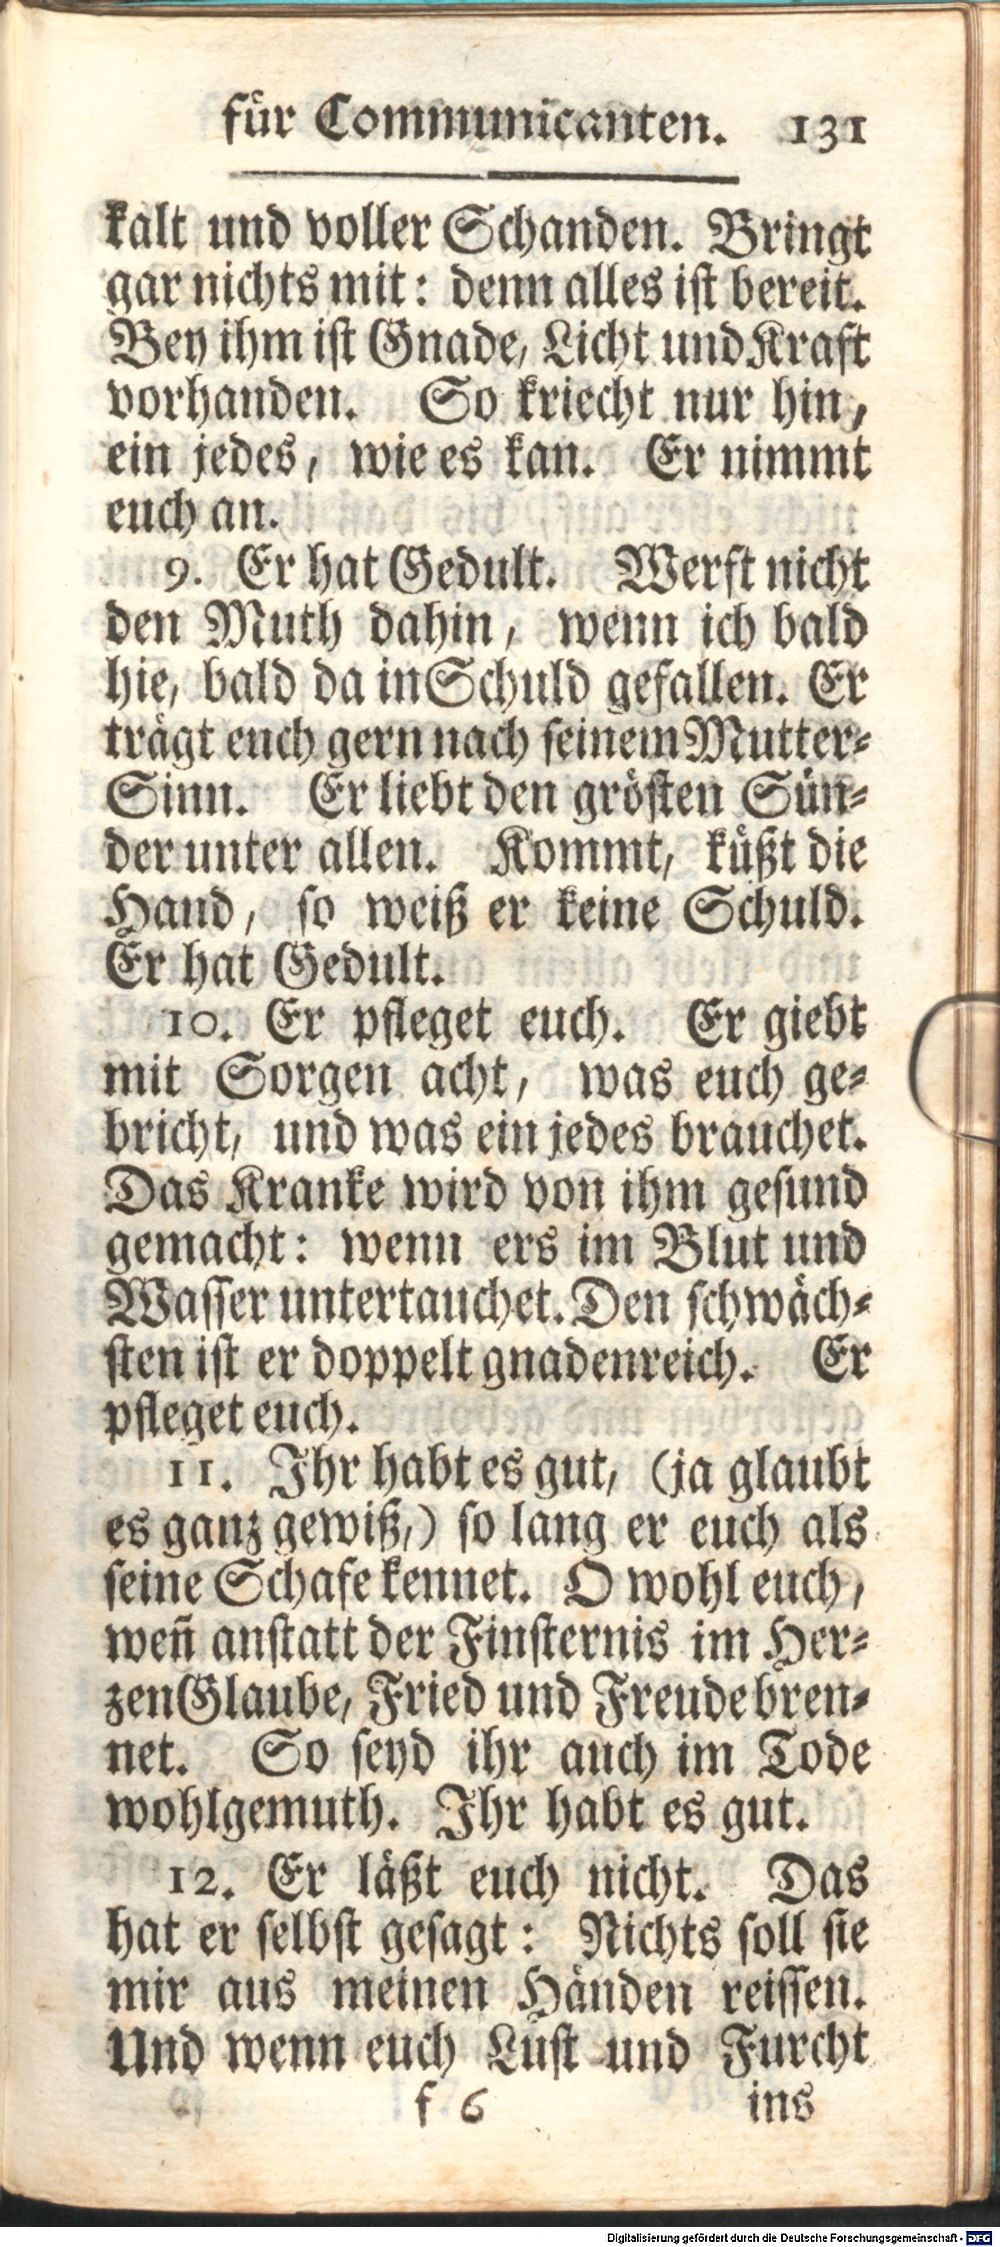 für Communicanten. 131
kalt und voller Schanden. Bringt
gar nichts mit: denn alles ist bereit.
Bey ihm ist Gnade, Licht und Kraft
vorhanden. So kriecht nur hin,
ein jedes, wie es kan. Er nimmt
euch an.
9. Er hat Gedult. Werft nicht
den Muth dahin, wenn ich bald
hie, bald da in Schuld gefallen. Er
trägt euch gern nach seinem Mutter-
Sinn. Er liebt den grösten Sün-
der unter allen. Kommt, küßt die
Hand, so weiß er keine Schuld.
Er hat Gedult.
10. Er pfleget euch. Er giebt
mit Sorgen acht, was euch ge-
bricht, und was ein jedes brauchet.
Das Kranke wird von ihm gesund
gemacht: wenn ers im Blut und
Wasser untertauchet. Den schwäch-
sten ist er doppelt gnadenreich. Er
pfleget euch.
11. Ihr habt es gut, (ja glaubt
es ganz gewiß,) so lang er euch als
seine Schafe kennet. O wohl euch,
weñ anstatt der Finsternis im Her-
zen Glaube, Fried und Freude bren-
net. So seyd ihr auch im Tode
wohlgemuth. Ihr habt es gut.
12. Er läßt euch nicht. Das
hat er selbst gesagt: Nichts soll sie
mir aus meinen Händen reissen.
Und wenn euch Lust und Furcht
f 6 ins
Digitalisierung gefördert durch die Deutsche Forschungsgemeinschaft - DFG